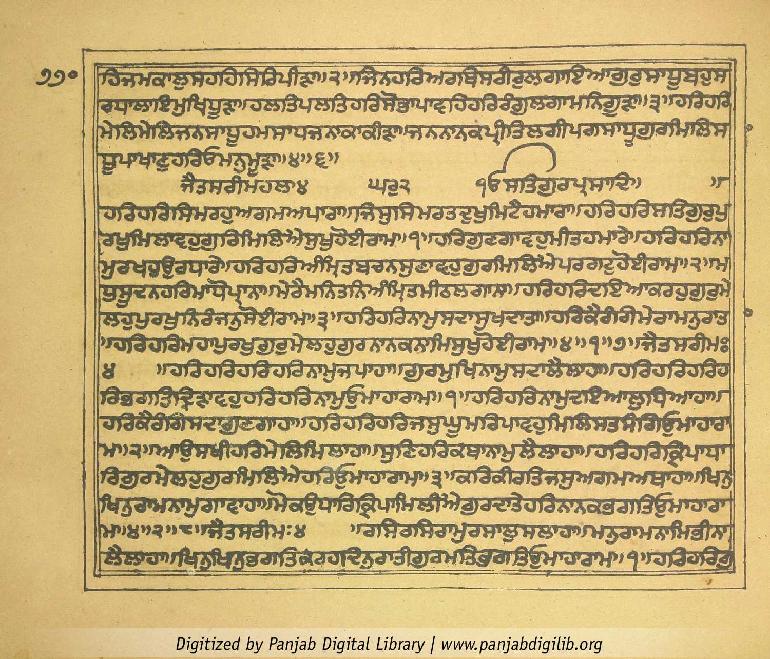 ੭੭੦
ਹਿਜਮਕਾਲੁਸਹਹਿਸਿਰਿਪੀੜਾ॥੨॥ਜਿਨਹਰਿਅਰਥਿਸਰੀਰੁਲਗਾਇਆਗੁਰਸਾਧੂਬਹੁਸ
ਰਧਾਲਾਇਮੁਖਿਧੂੜਾ॥ਹਲਤਿਪਲਤਿਹਰਿਸੋਭਾਪਾਵਹਿਹਰਿਰੰਗੁਲਗਾਮਨਿਗੂੜਾ॥੩॥ਹਰਿਹਰਿ
ਮੇਲਿਮੇਲਿਜਨਸਾਧੂਹਮਸਾਧਜਨਾਕਾਕੀੜਾ॥ਜਨਨਾਨਕਪ੍ਰੀਤਿਲਗੀਪਗਸਾਧੂਗੁਰਮਿਲਿਸਾ
ਧੂਪਾਖਾਣੁਹਰਿਓਮਨੁਮੂੜਾ॥੪॥੬॥
ਜੈਤਸਰੀਮਹਲਾ੪ ਘਰੁ੨ ੴਸਤਿਗੁਰਪ੍ਰਸਾਦਿ॥
ਹਰਿਹਰਿਸਿਮਰਹੁਅਗਮਅਪਾਰਾ॥ਜਿਸੁਸਿਮਰਤਦੁਖੁਮਿਟੈਹਮਾਰਾ॥ਹਰਿਹਰਿਸਤਿਗੁਰੁਪੁ
ਰਖੁਮਿਲਾਵਹੁਗੁਰਿਮਿਲਿਐਸੁਖੁਹੋਈਰਾਮ॥੧॥ਹਰਿਗੁਣਗਾਵਹੁਮੀਤਹਮਾਰੇ॥ਹਰਿਹਰਿਨਾ
ਮੁਰਖਹੁਉਰਧਾਰੇ॥ਹਰਿਹਰਿਅੰਮ੍ਰਿਤਬਚਨਸੁਣਾਵਹੁਗੁਰਮਿਲਿਐਪਰਗਟੁਹੋਈਰਾਮ॥੨॥ਮ
ਧੁਸੂਦਨਹਰਿਮਾਧੋਪ੍ਰਾਨਾ॥ਮੇਰੈਮਨਿਤਨਿਅੰਮ੍ਰਿਤਮੀਠਲਗਾਨਾ॥ਹਰਿਹਰਿਦਇਆਕਰਹੁਗੁਰੁਮੇ
ਲਹੁਪੁਰਖੁਨਿਰੰਜਨੁਸੋਈਰਾਮ॥੩॥ਹਰਿਹਰਿਨਾਮੁਸਦਾਸੁਖਦਾਤਾ॥ਹਰਿਕੈਰੰਗਿਮੇਰਾਮਨੁਰਾਤਾ
॥ਹਰਿਹਰਿਮਹਾਪੁਰਖੁਗੁਰੁਮੇਲਹੁਗੁਰਨਾਨਕਨਾਮਿਸੁਖੁਹੋਈਰਾਮ॥੪॥੧॥੭॥ਜੈਤਸਰੀਮਃ
੪ ॥ਹਰਿਹਰਿਹਰਿਹਰਿਨਾਮੁਜਪਾਹਾ॥ਗੁਰਮੁਖਿਨਾਮੁਸਦਾਲੈਲਾਹਾ॥ਹਰਿਹਰਿਹਰਿਹ
ਰਿਭਗਤਿਦ੍ਰਿੜਾਵਹੁਹਰਿਹਰਿਨਾਮੁਓੁਮਾਹਾਰਾਮ॥੧॥ਹਰਿਹਰਿਨਾਮੁਦਇਆਲੁਧਿਆਹਾ॥
ਹਰਿਕੈਰੰਗਿਸਦਾਗੁਣਗਾਹਾ॥ਹਰਿਹਰਿਹਰਿਜਸੁਘੂਮਰਿਪਾਵਹੁਮਿਲਿਸਤਸੰਗਿਓੁਮਾਹਾਰਾ
ਮ॥੨॥ਆਉਸਖੀਹਰਿਮੇਲਿਮਿਲਾਹਾ॥ਸੁਣਿਹਰਿਕਥਾਨਾਮੁਲੈਲਾਹਾ॥ਹਰਿਹਰਿਕ੍ਰਿਪਾਧਾ
ਰਿਗੁਰਮੇਲਹੁਗੁਰਮਿਲਿਐਹਰਿਓੁਮਾਹਾਰਾਮ॥੩॥ਕਰਿਕੀਰਤਿਜਸੁਅਗਮਅਥਾਹਾ॥ਖਿਨੁ
ਖਿਨੁਰਾਮਨਾਮੁਗਾਵਾਹਾ॥ਮੋਕਉਧਾਰਿਕ੍ਰਿਪਾਮਿਲੀਐਗੁਰਦਾਤੇਹਰਿਨਾਨਕਭਗਤਿਓੁਮਾਹਾਰਾ
ਮ॥੪॥੨॥੮॥ਜੈਤਸਰੀਮਃ੪ ॥ਰਸਿਰਸਿਰਾਮੁਰਸਾਲੁਸਲਾਹਾ॥ਮਨੁਰਾਮਨਾਮਿਭੀਨਾ
ਲੈਲਾਹਾ॥ਖਿਨੁਖਿਨੁਭਗਤਿਕਰਹਦਿਨੁਰਾਤੀਗੁਰਮਤਿਭਗਤਿਓੁਮਾਹਾਰਾਮ॥੧॥ਹਰਿਹਰਿਗੁ
Digitized by Panjab Digital Library | www.panjabdigilib.org